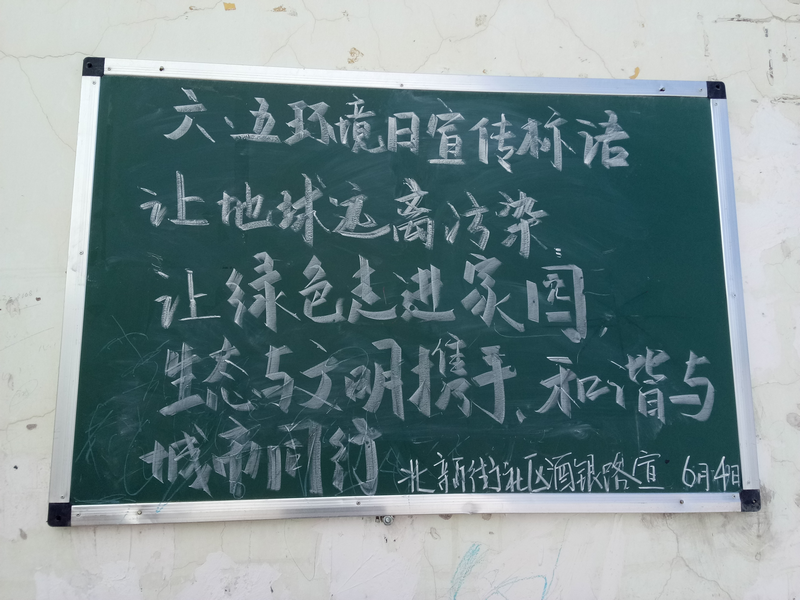 六·五环境日宣传标语
让地球远离污染
让绿色走进家园
生态与文明携手、和谐与
城市同行 北新街社区酒银路宣 6月4日